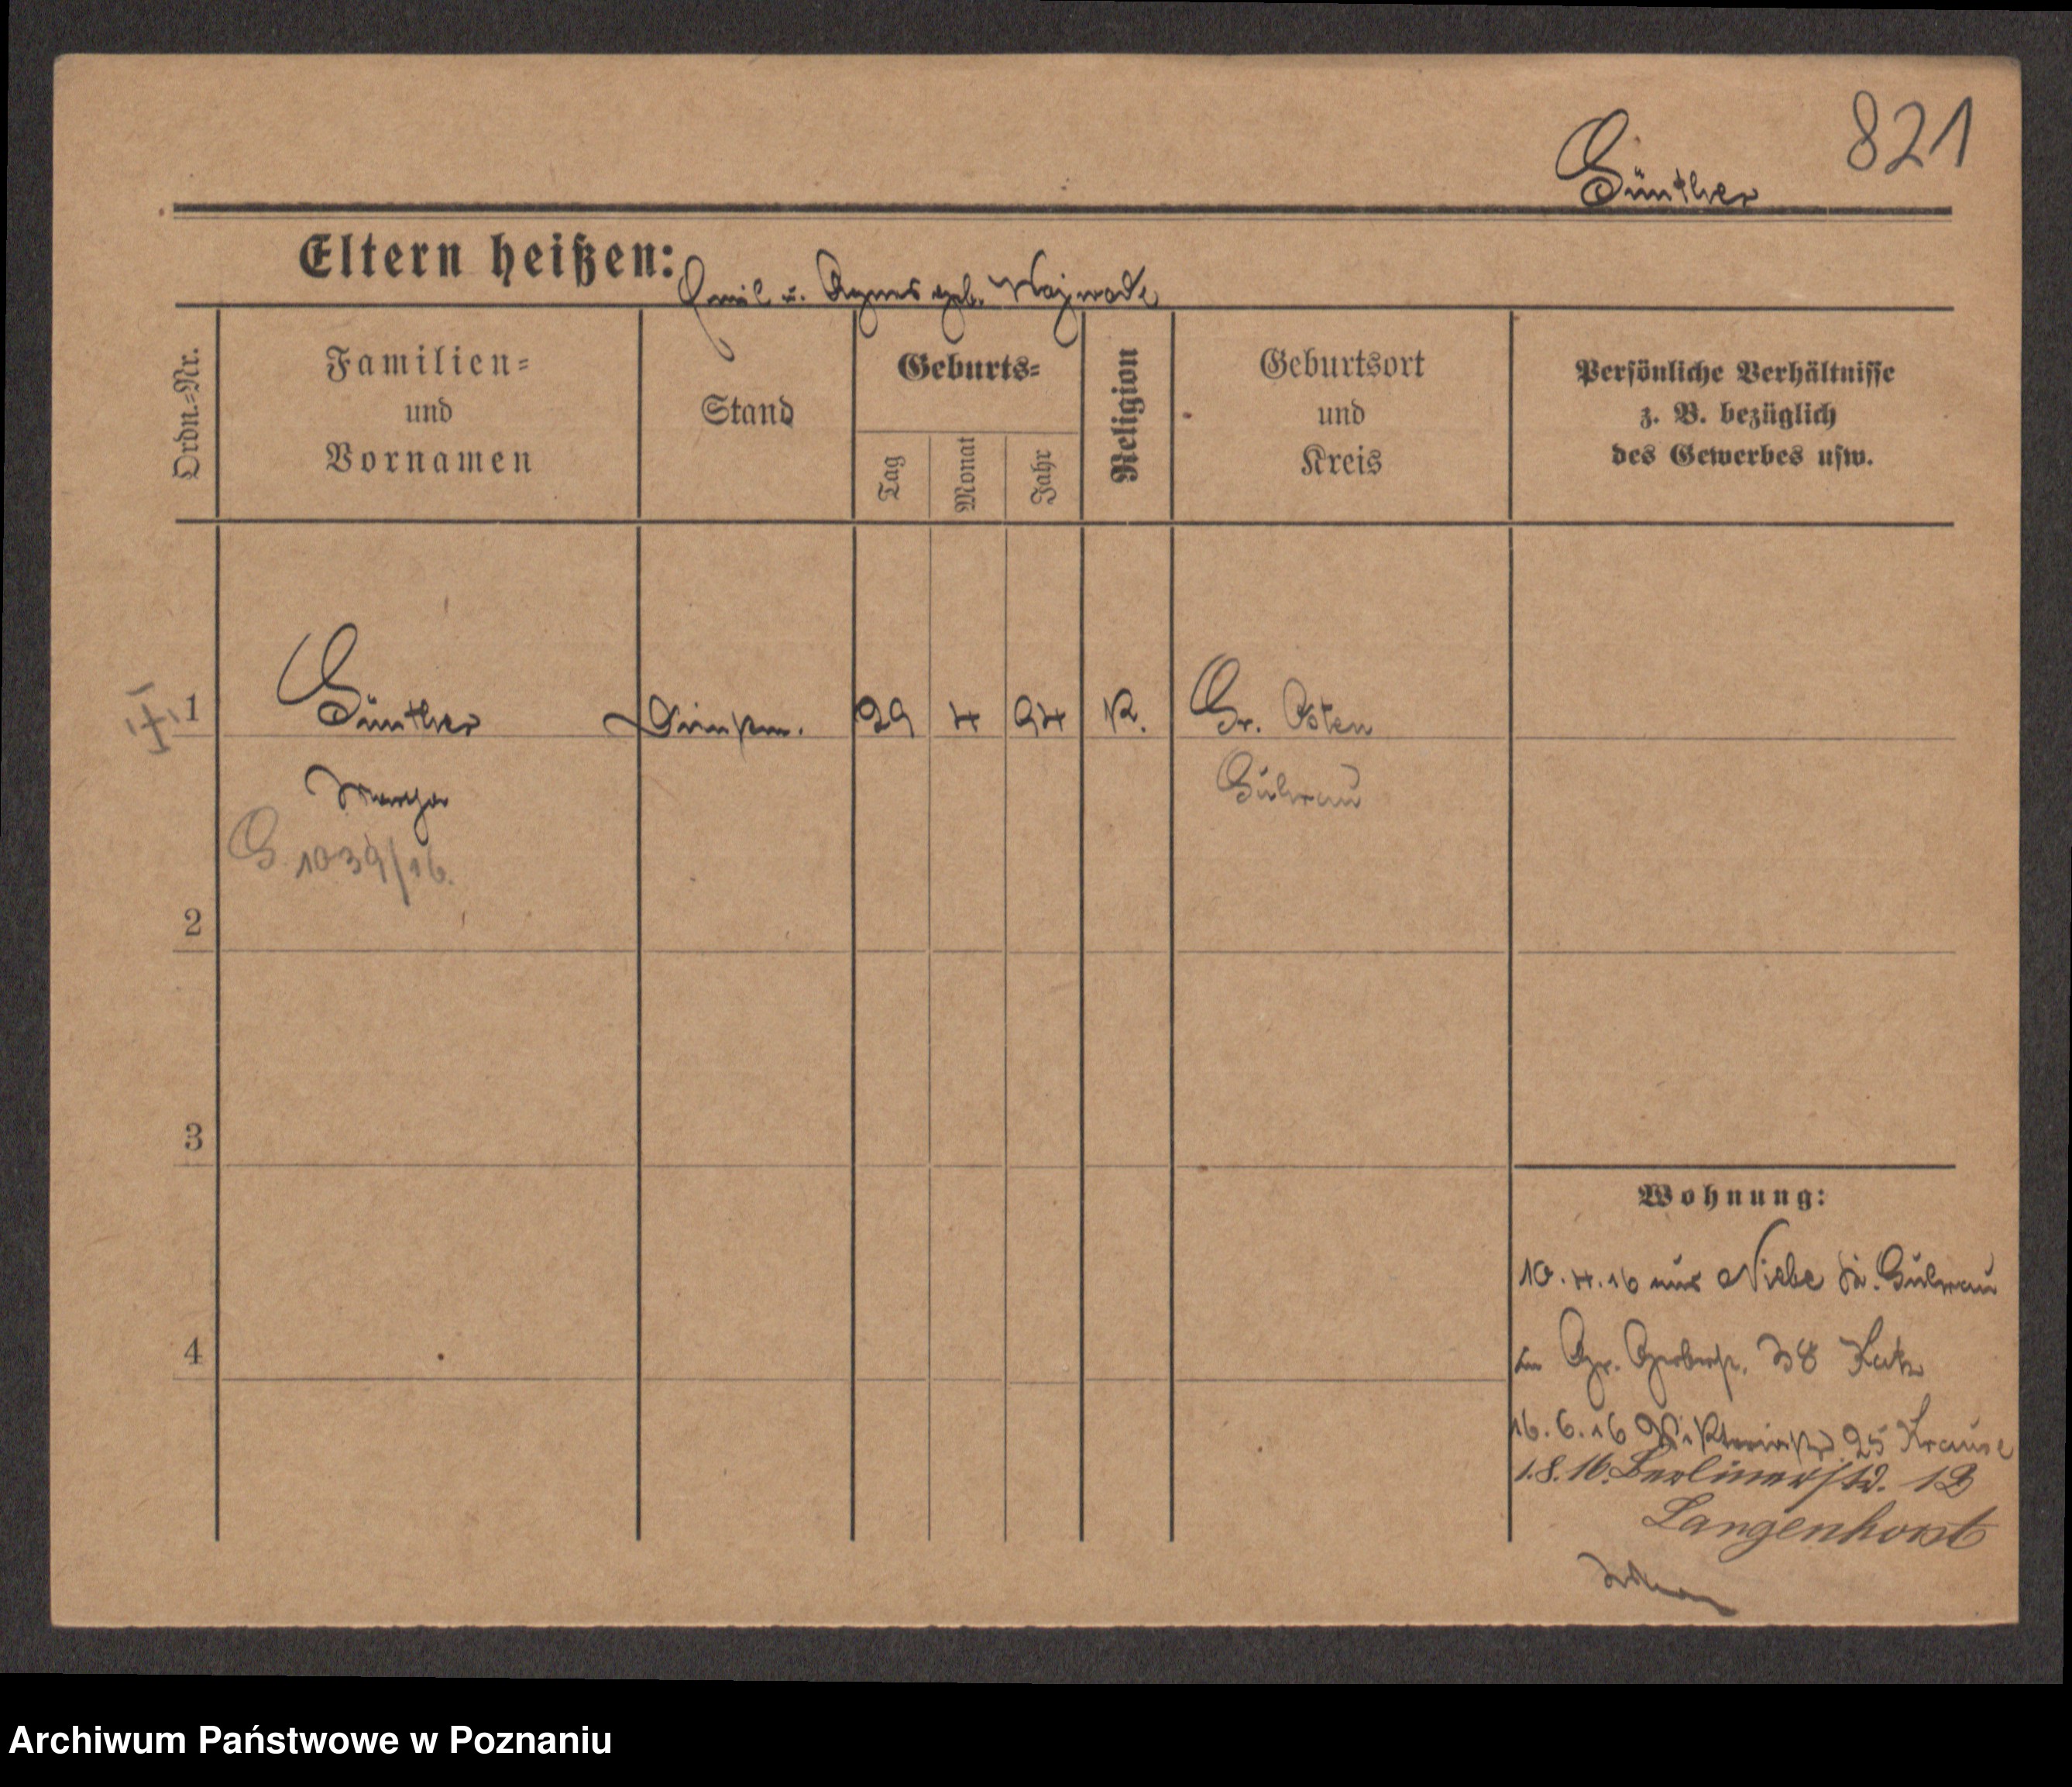 821
Günther
Eltern heißen: Emil u. Agnes geb.
Ordn.=Nr.
Familien=
und
Vornamen
Stand
Geburts=
Tag
Monat
Jahr
Religion
Geburtsort
und
Kreis
Persönliche Verhältnisse
z. B. bezüglich
des Gewerbes usw.
1
Günther
Dienstm.
29
4
94
K.
Gr. Osten
Guhrau
G. 1039/16.
2
3
4
Wohnung:
10.4.16 aus Guhrau
Gr. Gerberstr. 38 Katz
16.6.16 Viktoriastr. 25 Krause
1.8.16. Berlinerstr. 12
Langenhorst
Archiwum Państwowe w Poznaniu